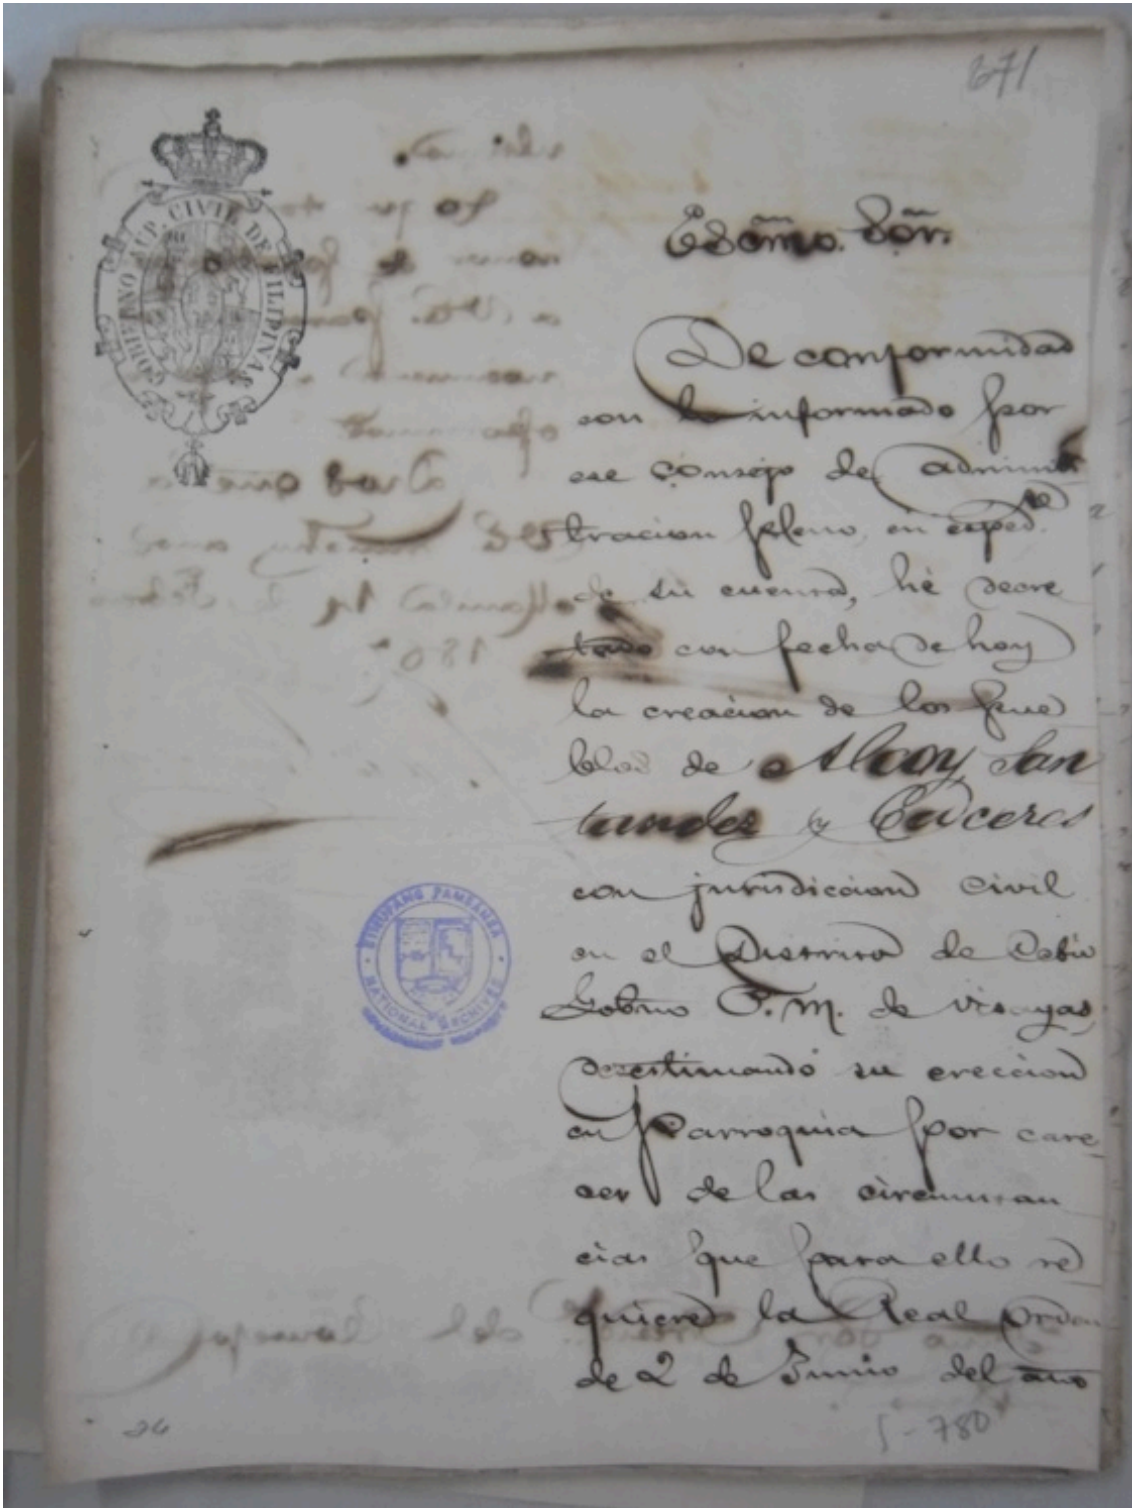 671
GOBIERNO SUP. CIVIL DE FILIPINAS
Ecsmo. Sor.
De conformidad
con lo informado por
ese Consejo de Adminis
tracion pleno, en esped.te
de su cuenta, hé decre
tado con fecha de hoy
la creacion de los pue
blos de Alcoy, San
tander y Cáceres
con jurisdiccion civil
en el Distrito de Cebú
Gobno P. M. de Visayas,
desestimando su ereccion
en Parroquia por care
cer de las circunstan
cias que para ello re
quiere la Real orden
de 2 de Junio del año
NATIONAL ARCHIVES
24
S-780